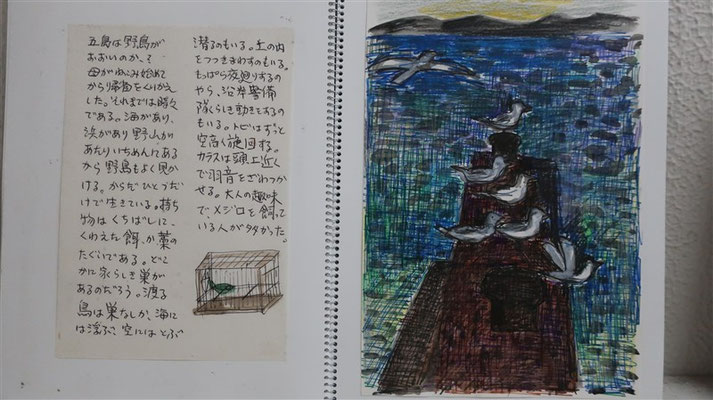 五島は野鳥が
おおいのか、?
母がねこみ始めて
から帰島をくりかえ
した。それまでは時々
である。海があり、
浜があり野山が
あたりいちめんにある
から野鳥もよく見か
ける。からだひとつだ
けで生きている。持ち
物はくちばしに、
くわえた餌、か藁の
たぐいである。どこ
かに家らしき巣が
あるのだろう。渡る
鳥は巣なしか、海に
は浮ぶ、空にはとぶ
潜るのもいる。土の内
をつつきまわすのもいる。
もっぱら夜廻りするの
やら、沿岸警備
隊らしき動きをするの
もいる。トビはずっと
空高く旋回する。
カラスは頭上近く
で羽音をざわつか
せる。大人の趣味
で、メジロを飼って
いる人が多かった。